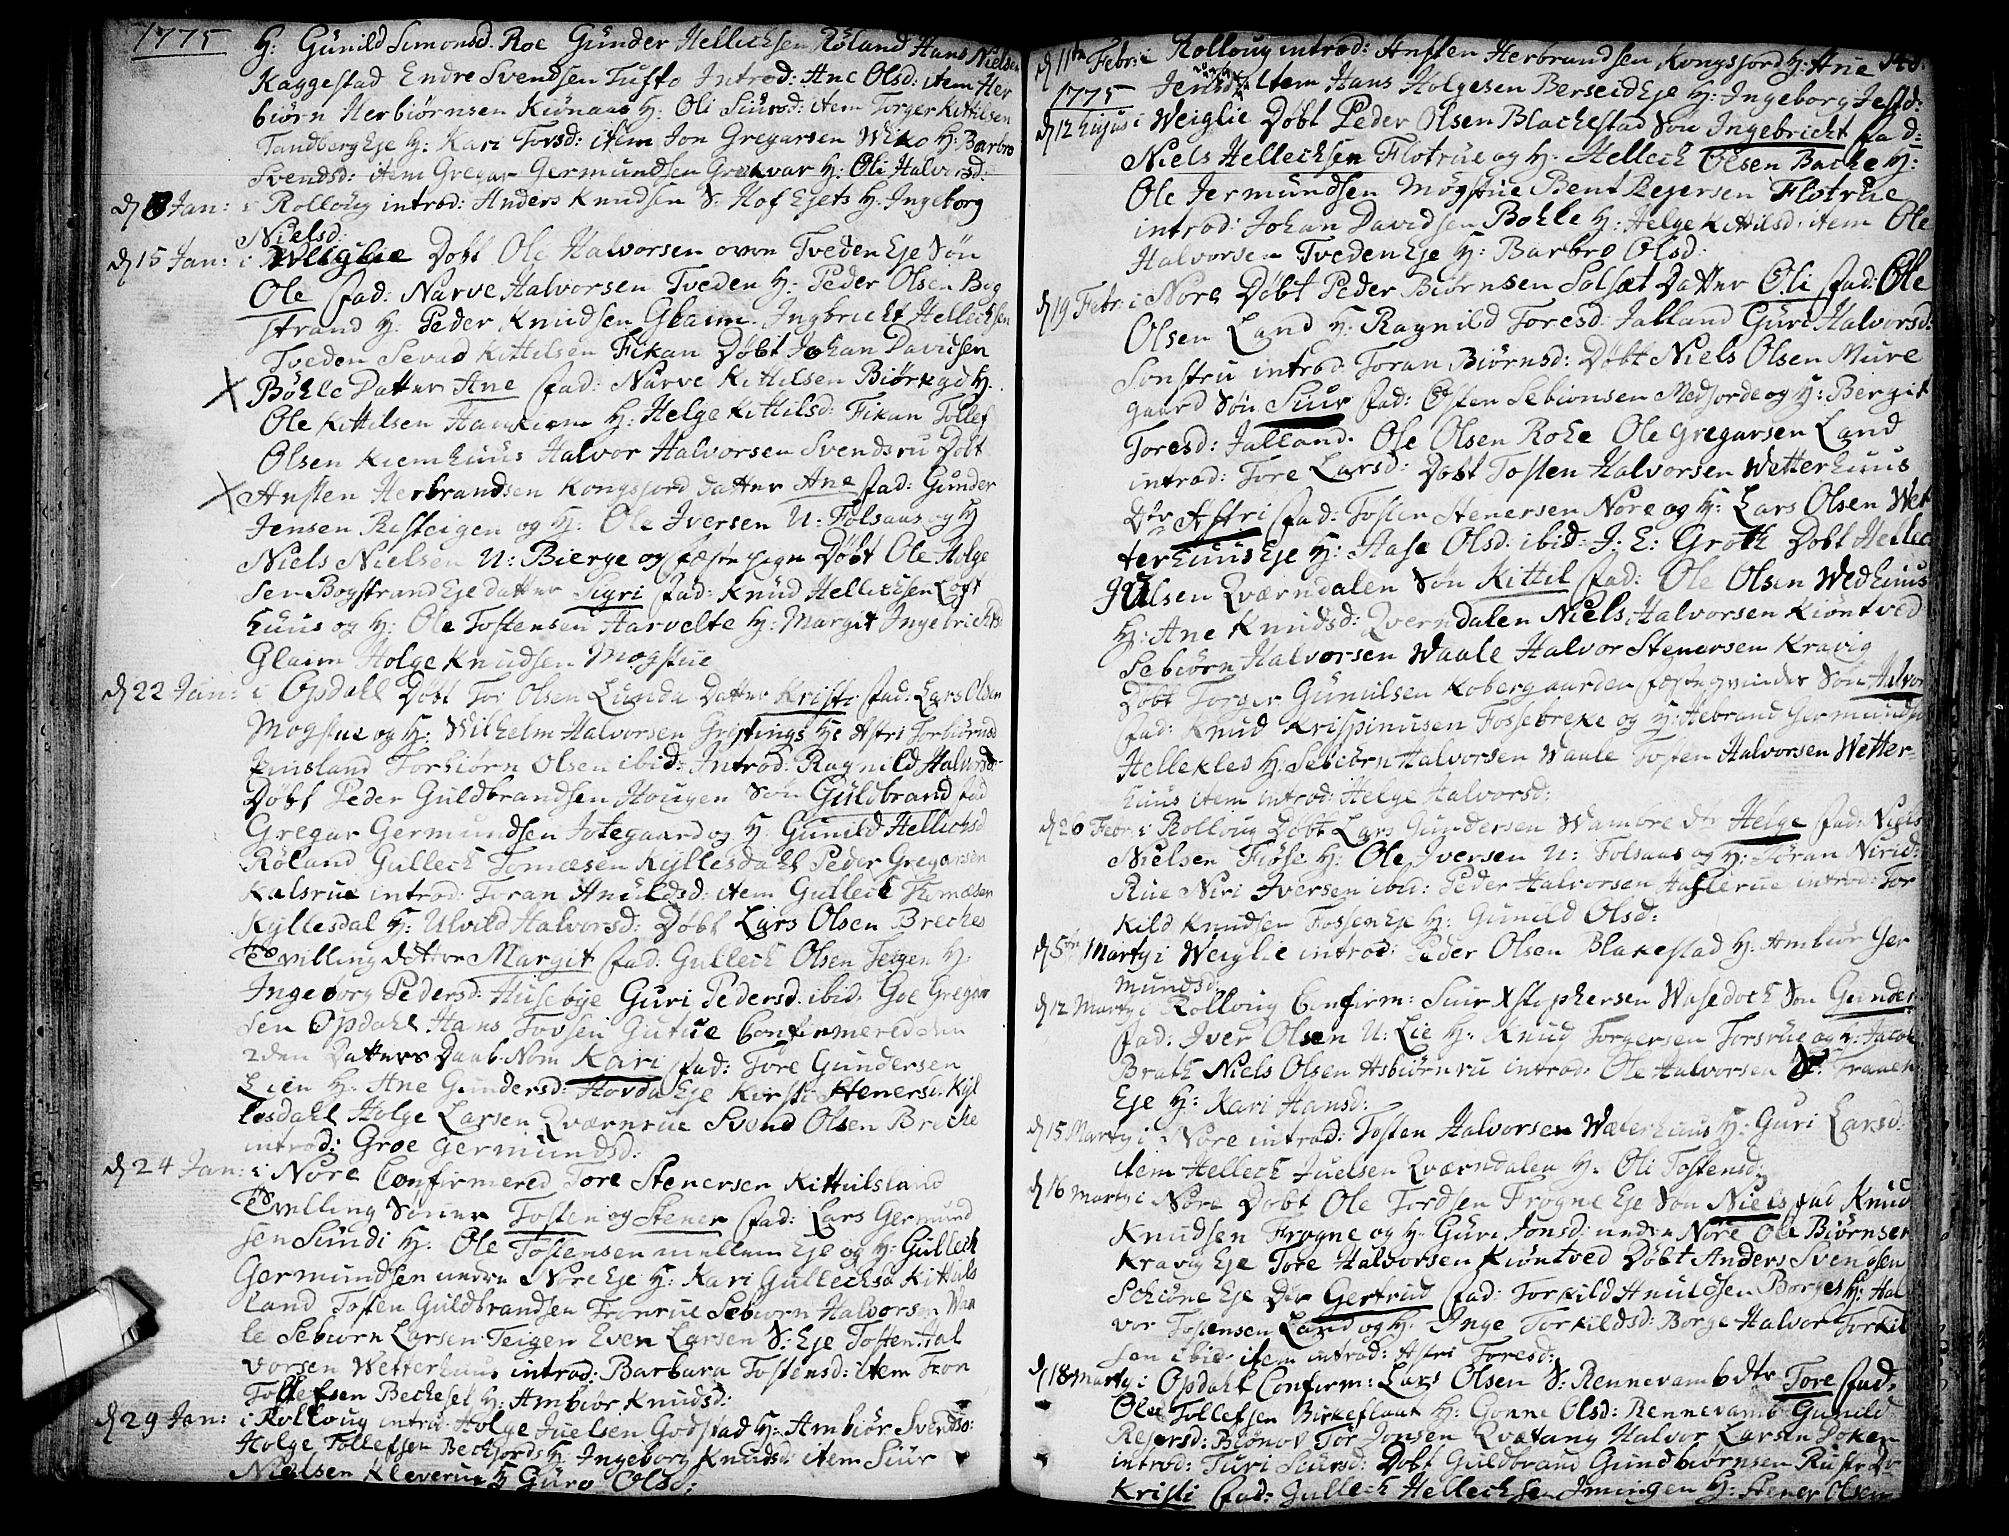 1775
H: Gunild Simonsd. Roe Gunder Hellechsen Røland Hans Nielsen
Kaggestad Endre Svendsen Tufto Introd: Ane Olsd: item Her
biørn Herbiørnsen Kiønaas H: Oli Siursd: item Torger Kittilsen
Tandberg Eje H: Kari Tovsd: item Jon Gregarsen H: Barbro
Svendsd: item Gregar Germundsen H: Oli Halvorsd:
d 8 Jan: i Rolloug introd: Anders Knudsen S. Hof Ejets H. Ingeborg
Nielsd:
d 15 Jan: i Weiglie Døbt Ole Halvorsen Tveden Eje Søn
Ole fad: Narve Halvorsen Tveden H: Peder Olsen Bog
strand H: Peder Knudsen Glaim. Ingbricht Hellechsen
Tveden Sevad Kittilsen Fikan Døbt Johan Davidsen
Bøhle Datter Ane fad: Narve Kittilsen H.
Ole Kittilsen H: Helge Kittilsd: Fikan Tollef
Olsen Kiemhuus Halvor Halvorsen Svendsru Døbt
Ansten Herbrandsen Kongsjord datter Ane fad: Gunder
Jensen Rasteigen og H: Ole Iversen U: Folsaas og H
Niels Nielsen U: Bierge og fæste pige Døbt Ole Holge
sen Bogstrand Eje datter Sigri fad: Knud Hellechsen Loft
huus og H: Ole Tostensen Aarvelte H: Margit Ingebrichts
Glaim Holge Knudsen Mogstue
d 22 Jan: i Opdahl Døbt Tor Olsen Lunda Datter Kristi fad: Lars Olsen
Mogstue og H: Wilhelm Halvorsen Grøstings H: Astri Torbiørnsd
Juusland Torbiørn Olsen ibid: Introd: Ragnild Halvorsd:
Døbt Peder Guldbrandsen Hougen Søn Guldbrand fad
Gregar Germundsen Jotegaard og H: Gunild Hellechsd
Røland Gulleck Tomæsen Kyllesdahl Peder Gregarsen
Kalsrue introd: Toran Anuldsd: item Gulleck Thomæsen
Kyllesdal H: Ulvild Halvorsd: Døbt Lars Olsen Breches
Tvilling datter Margit fad: Gulleck Olsen Teigen H:
Ingeborg Pedersd: Husebye Guri Pedersd. ibid. Goe Gregar
sen Opdahl Hans Tovsen Gutue Confirmered den
2den Datters Daab. Nom Kari fad: Tore Gundersen
Lien H: Ane Gundersd: Hovda Eje Kirsti Stenersd. Kyl
lesdahl Holge Larsen Qværnrue Svend Olsen Breche
introd: Groe Germundsd:
d 24 Jan: i Nore Confirmered Tore Stenersen Kittilsland
Tvilling Sønner Tosten og Stener fad: Lars Germund
sen Sundi H: Ole Tostensen mellem Eje og H: Gulleck
Germundsen nedre Nore Eje H: Kari Gullechsd Kittils
land Tosten Guldbrandsen Tronrue Sebiørn Halvorsen Waa
le Sebiørn Larsen Teigen Even Larsen S: Eje Tosten Hal
vorsen Wetterhuus introd: Barbara Tostensd: item Tron
Tollefsen Beckesel H: Ambiør Knudsd:
d 29 Jan: i Rolloug introd: Holge Juelsen Godstad H: Ambiør Svendsd:
Holge Tollefsen Beckjords H. Ingeborg Knudsd: item Siur
Nielsen Kleverue H Guro Olsd:
d 11te Febr: i Rolloug introd: Ansten Herbrandsen Kongsjord H: Ane
Jensd: item Hans Holgesen Berseid Eje H: Ingeborg
1775
d 12 hujus i Weiglie Døbt Peder Olsen Blackestad Søn Ingebricht fad:
Niels Hellechsen Flotrue og H: Helleck Olsen Bache H:
Ole Jermundsen Møgstue Bent Rejersen Flotrue
introd: Johan Davidsen Bøhle H: Helge Kittilsd: item Ole
Halvorsen Tveden Eje H: Barbro Olsd:
d 19 Febr: i Nore Døbt Peder Biørnsen Solsæt Datter Oli fad: Ole
Olsen Land H: Ragnild Toresd: Jalland Guri Halvorsd:
Sonstru introd: Toran Biørnsd: Døbt Niels Olsen Mure
gaard Søn Siur fad: Østen Sebiørnsen Medjorde og H: Bergit
Toresd: Jalland. Ole Olsen Rohe Ole Gregarsen Land
introd: Tore Larsd: Døbt Tosten Halvorsen Wetterhuus
Dtr Astri fad: Tosten Stenersen Nore og H: Lars Olsen Wet
terhuus Eje H: Aase Olsd. ibid. J. E: Groth Døbt Hellec
Julsen Qværndalen Søn Kittil fad: Ole Olsen Wedhuus
H: Ane Knudsd: Qverndalen Niels Halvorsen Kiøntved
Sebiørn Halvorsen Waale Halvor Stenersen Kravig
Døbt Torger Gunulsen Kobergaarden fæste qvindes Søn Halvor
fad: Knud Krispinusen Fossebreke og H: Hebrand Germundsen
Hellekles H: Sebiørn Halvorsen Waale Tosten Halvorsen Wetter-
huus item introd: Helge Halvorsd:
d 26 Febr: i Rolloug Døbt Lars Gundersen Wamore dtr Helge fad: Niels
Nielsen Fiøse H: Ole Iversen U: Folsaas og H: Jøran Nirid:
Rue Neri Iversen ibid: Peder Halvorsen Haslerue introd: Tor
kild Knudsen Fossen Eje H: Gunild Olsd:
d 5te Marty i Weiglie introd: Peder Olsen Blakestad H: Ambiør Ger
mundsd:
d 12 Marty i Rolloug Confirm: Siur Xstophersen Wasedoch Søn Gunder
fad: Iver Olsen U: Lie H: Knud Torgersen Torsrue og H: Jacob
Brath Niels Olsen Asbiørnru introd. Ole Halvorsen S: Traaen
Eje H: Kari Hansd:
d 15 Marty i Nore introd: Tosten Halvorsen Wæterhuus H: Guri Larsd:
item Helleck Juelsen Qværndalen H: Oli Tostensd:
d 16 Marty i Nore Døbt Ole Tordsen Frogne Eje Søn Niels fad Knud
Knudsen Frogne og H: Guri Jonsd: nedre Nore Ole Biørnsen
Kravig Eje Tore Halvorsen Kiøntved Døbt Anders Svendsen
Schiøne Eje Dtr Gertrud fad: Torkild Anuldsen Borges H: Hal
vor Tostensen Land og H: Inge Torkildsd: Borge Halvor Torkil
sen ibid item introd: Astri Toresd:
d 18 Marty i Opdahl Confirm: Lars Olsen S: Rennevamb dtr Tore fad:
Ole Tollefsen Birkeflaat H: Gonne Olsd: Rennevamb Gunild
Rejersd: Biønov Tor Jonsen Qvævang Halvor Larsen Joken
introd: Turi Siursd: Døbt Guldbrand Gundbiørnsen Ruste Dr
Kristi fad: Gulleck Hellechsen Imingen H: Stener Olsen